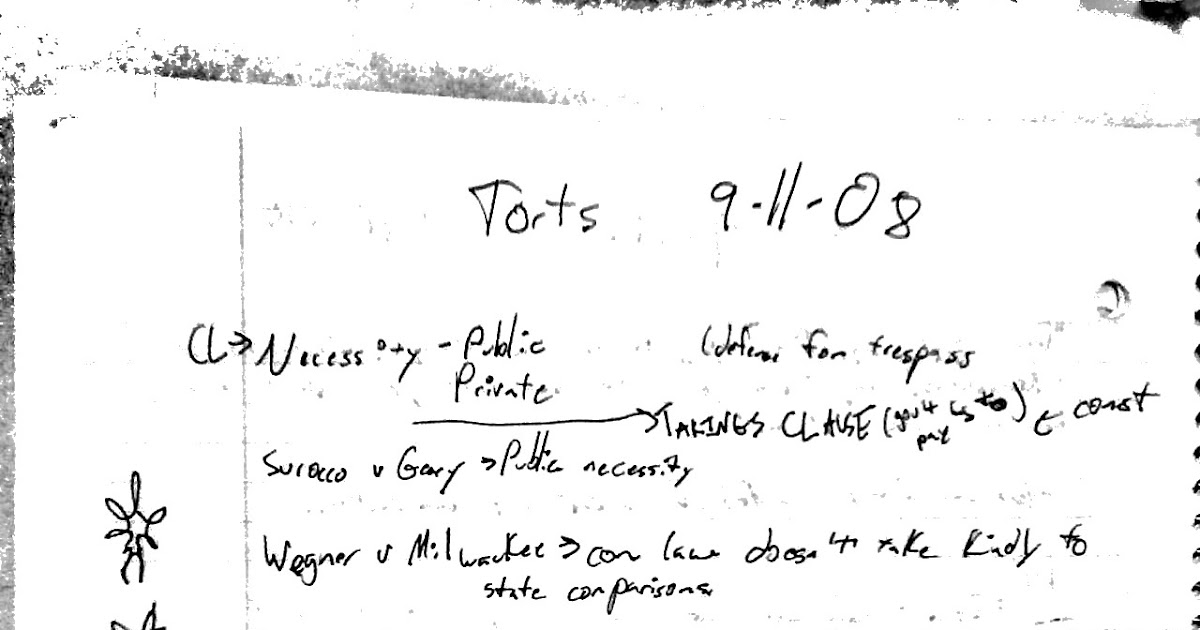 Torts 9-11-08
CL → Necessity - Public (defense for trespass
Private
→ TAKINGS CLAUSE (gov't has to pay) ← const
Surocco v Geary → Public necessity
Wegner v Milwaukee → con law doesn't take kindly to
state comparisons